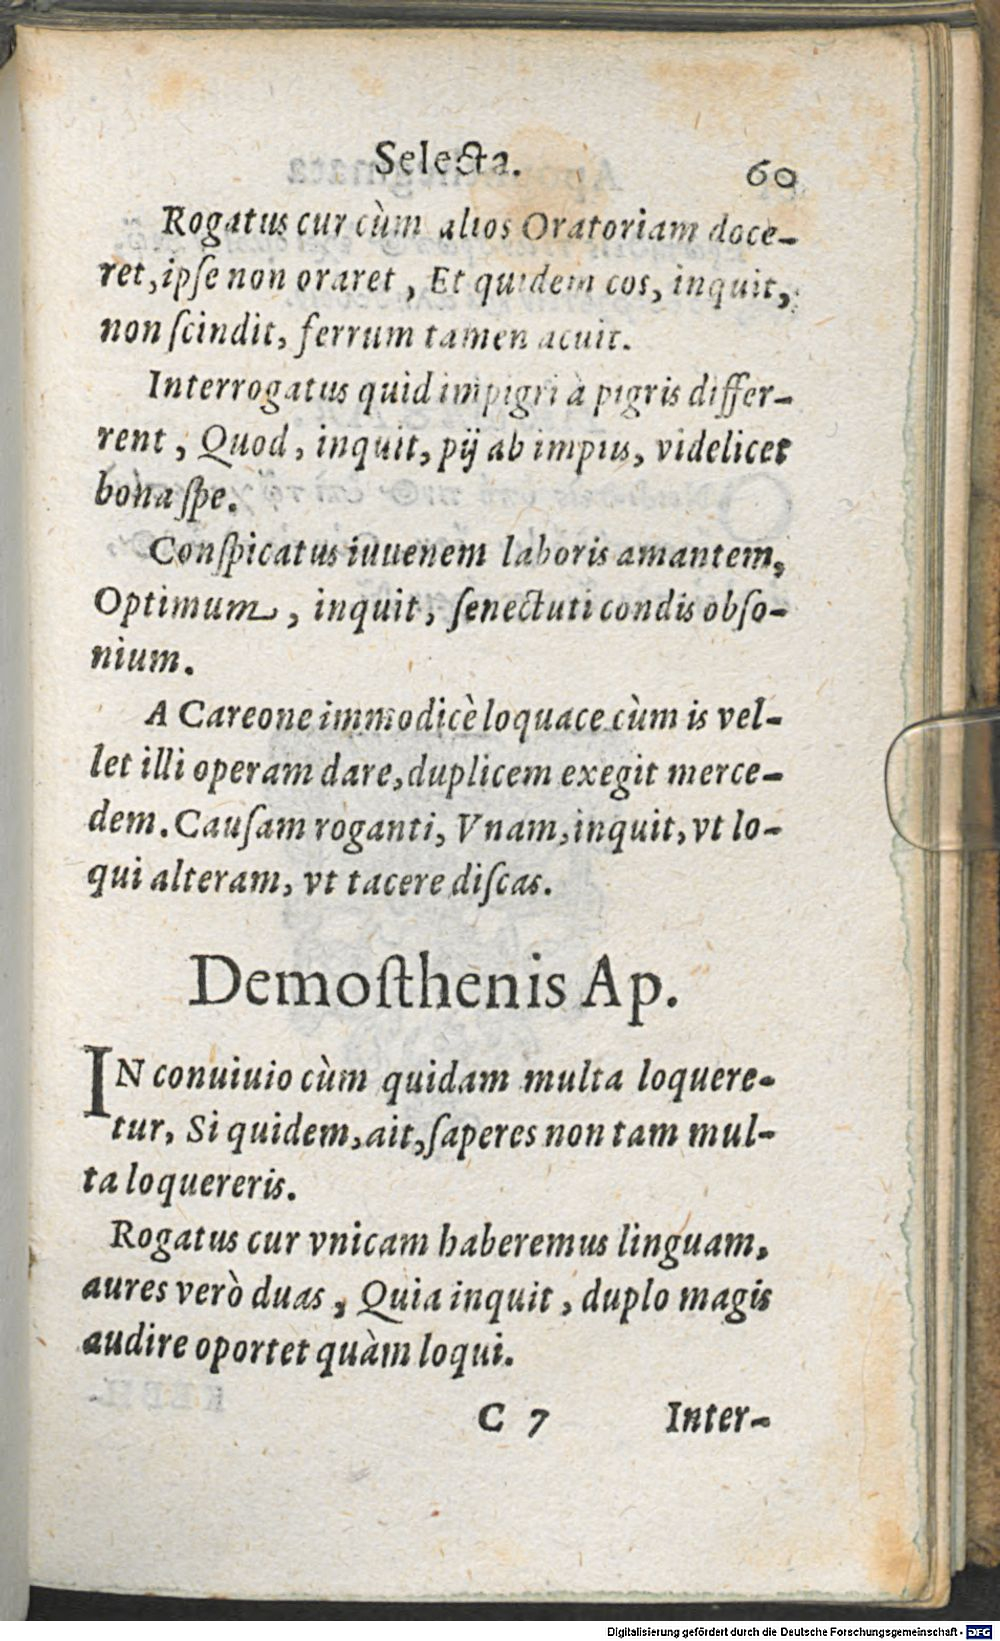 Selecta. 60
Rogatus cur cùm alios Oratoriam doce-
ret, ipſe non oraret, Et quidem cos, inquit,
non ſcindit, ferrum tamen acuit.
Interrogatus quid impigri à pigris differ-
rent, Quod, inquit, pij ab impiis, videlicet
bona ſpe.
Conſpicatus iuuenem laboris amantem,
Optimum, inquit, ſenectuti condis obſo-
nium.
A Careone immodicè loquace cùm is vel-
let illi operam dare, duplicem exegit merce-
dem. Cauſam roganti, Vnam, inquit, vt lo-
qui alteram, vt tacere diſcas.
Demoſthenis Ap.
IN conuiuio cùm quidam multa loquere-
tur, Si quidem, ait, ſaperes non tam mul-
ta loquereris.
Rogatus cur vnicam haberemus linguam,
aures verò duas, Quia inquit, duplo magis
audire oportet quàm loqui.
C 7 Inter-
Digitalisierung gefördert durch die Deutsche Forschungsgemeinschaft - DFG